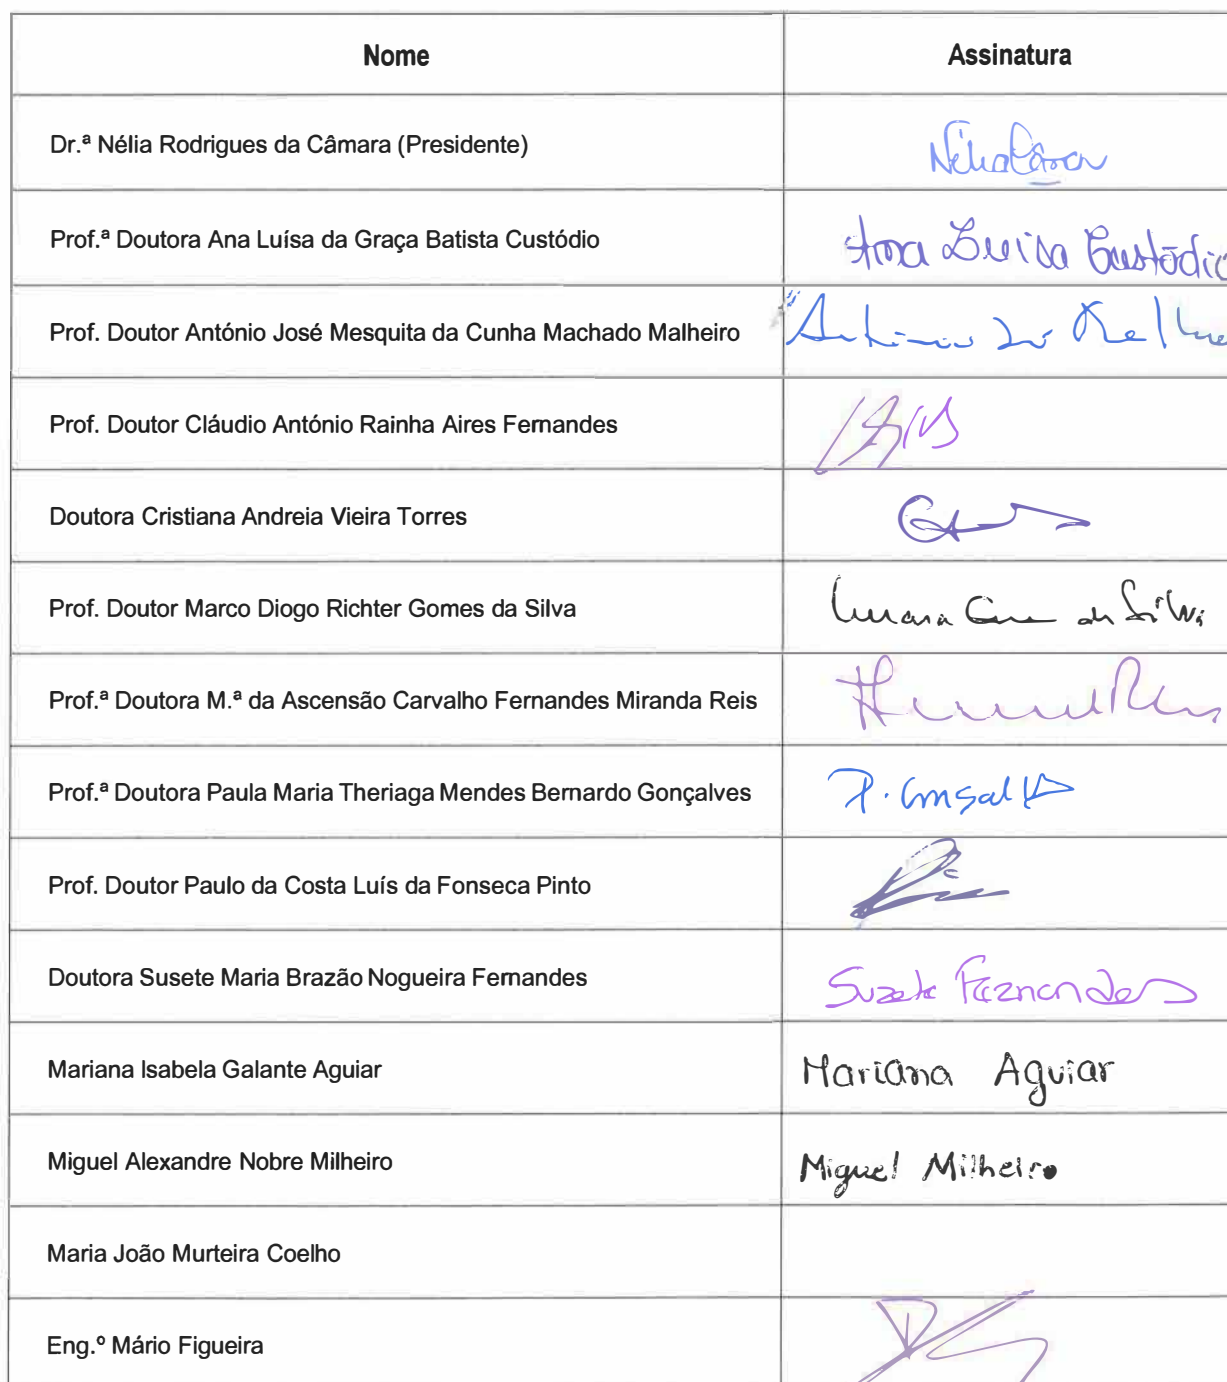 Nome Assinatura
Dr.ª Nélia Rodrigues da Câmara (Presidente) Nélia Câmara
Prof.ª Doutora Ana Luísa da Graça Batista Custódio Ana Luísa Custódio
Prof. Doutor António José Mesquita da Cunha Machado Malheiro
Prof. Doutor Cláudio António Rainha Aires Fernandes
Doutora Cristiana Andreia Vieira Torres
Prof. Doutor Marco Diogo Richter Gomes da Silva
Prof.ª Doutora M.ª da Ascensão Carvalho Fernandes Miranda Reis
Prof.ª Doutora Paula Maria Theriaga Mendes Bernardo Gonçalves P. Gonçalves
Prof. Doutor Paulo da Costa Luís da Fonseca Pinto
Doutora Susete Maria Brazão Nogueira Fernandes Suzete Fernandes
Mariana Isabela Galante Aguiar Mariana Aguiar
Miguel Alexandre Nobre Milheiro Miguel Milheiro
Maria João Murteira Coelho
Eng.º Mário Figueira